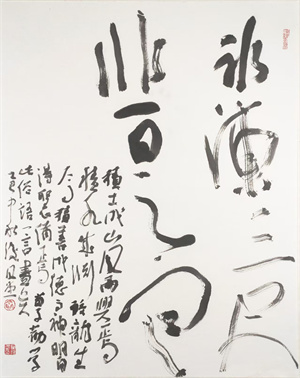 冰凍三尺
非一日之寒
積土成山風雨興焉
積水成淵蛟龍生
焉積善成德而神明自
得聖心備焉荀子勸學
此俗語一言盡之矣